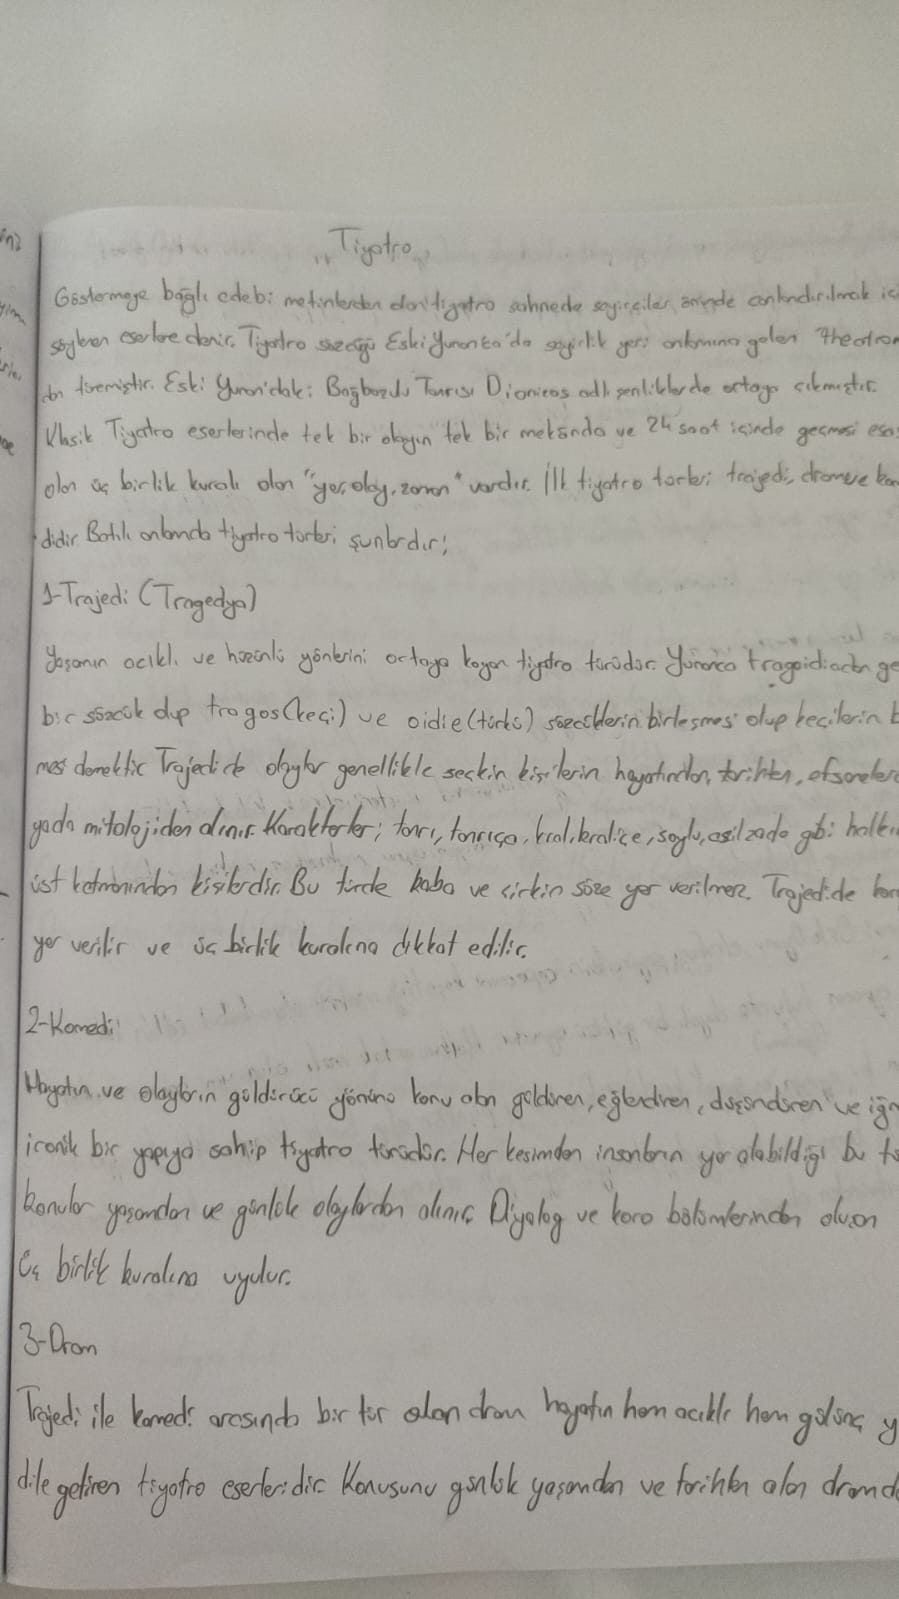 "Tiyatro"
Göstermeye bağlı edebi metinlerden olan tiyatro sahnede seyirciler önünde canlandırılmak içi
söylenen eserlere denir. Tiyatro sözcüğü Eski Yunanca'da seyirlik yeri anlamına gelen "theatron
dan türemiştir. Eski Yunan'daki Bağbozdu Tanrısı Dionicos adlı şenliklerde ortaya çıkmıştır.
Klasik Tiyatro eserlerinde tek bir olayın tek bir mekânda ve 24 saat içinde geçmesi esas
olan üç birlik kuralı olan "yer, olay, zaman" vardır. İlk tiyatro türleri trajedi, dram ve kom
didir. Batılı anlamda tiyatro türleri şunlardır;
1-Trajedi (Tragedya)
Yaşamın acıklı ve hüzünlü yönlerini ortaya koyan tiyatro türüdür. Yunanca tragoidiadan ge
bir sözcük olup tragos(keçi) ve oidie(türkü) sözcüklerin birleşmesi olup keçilerin
mesi demektir. Trajedide olaylar genellikle seçkin kişilerin hayatından, tarihten, efsaneler
yada mitolojiden alınır. Karakterler; tanrı, tanrıça, kral, kraliçe, soylu, asilzade gibi halkın
üst katmanından kişilerdir. Bu türde kaba ve çirkin söze yer verilmez. Trajedide
yer verilir ve üç birlik kuralına dikkat edilir.
2-Komedi
Hayatın ve olayların güldürücü yönünü konu alan güldüren, eğlendiren, düşündüren ve iğn
ironik bir yapıya sahip tiyatro türüdür. Her kesimden insanların yer alabildiği bu tü
konular yaşamdan ve günlük olaylardan alınır. Diyalog ve koro bölümlerinden oluşan
Üç birlik kuralına uyulur.
3-Dram
Trajedi ile komedi arasında bir tür olan dram hayatın hem acıklı hem gülünç y
dile getiren tiyatro eserleridir. Konusunu günlük yaşamdan ve tarihten alan dramd